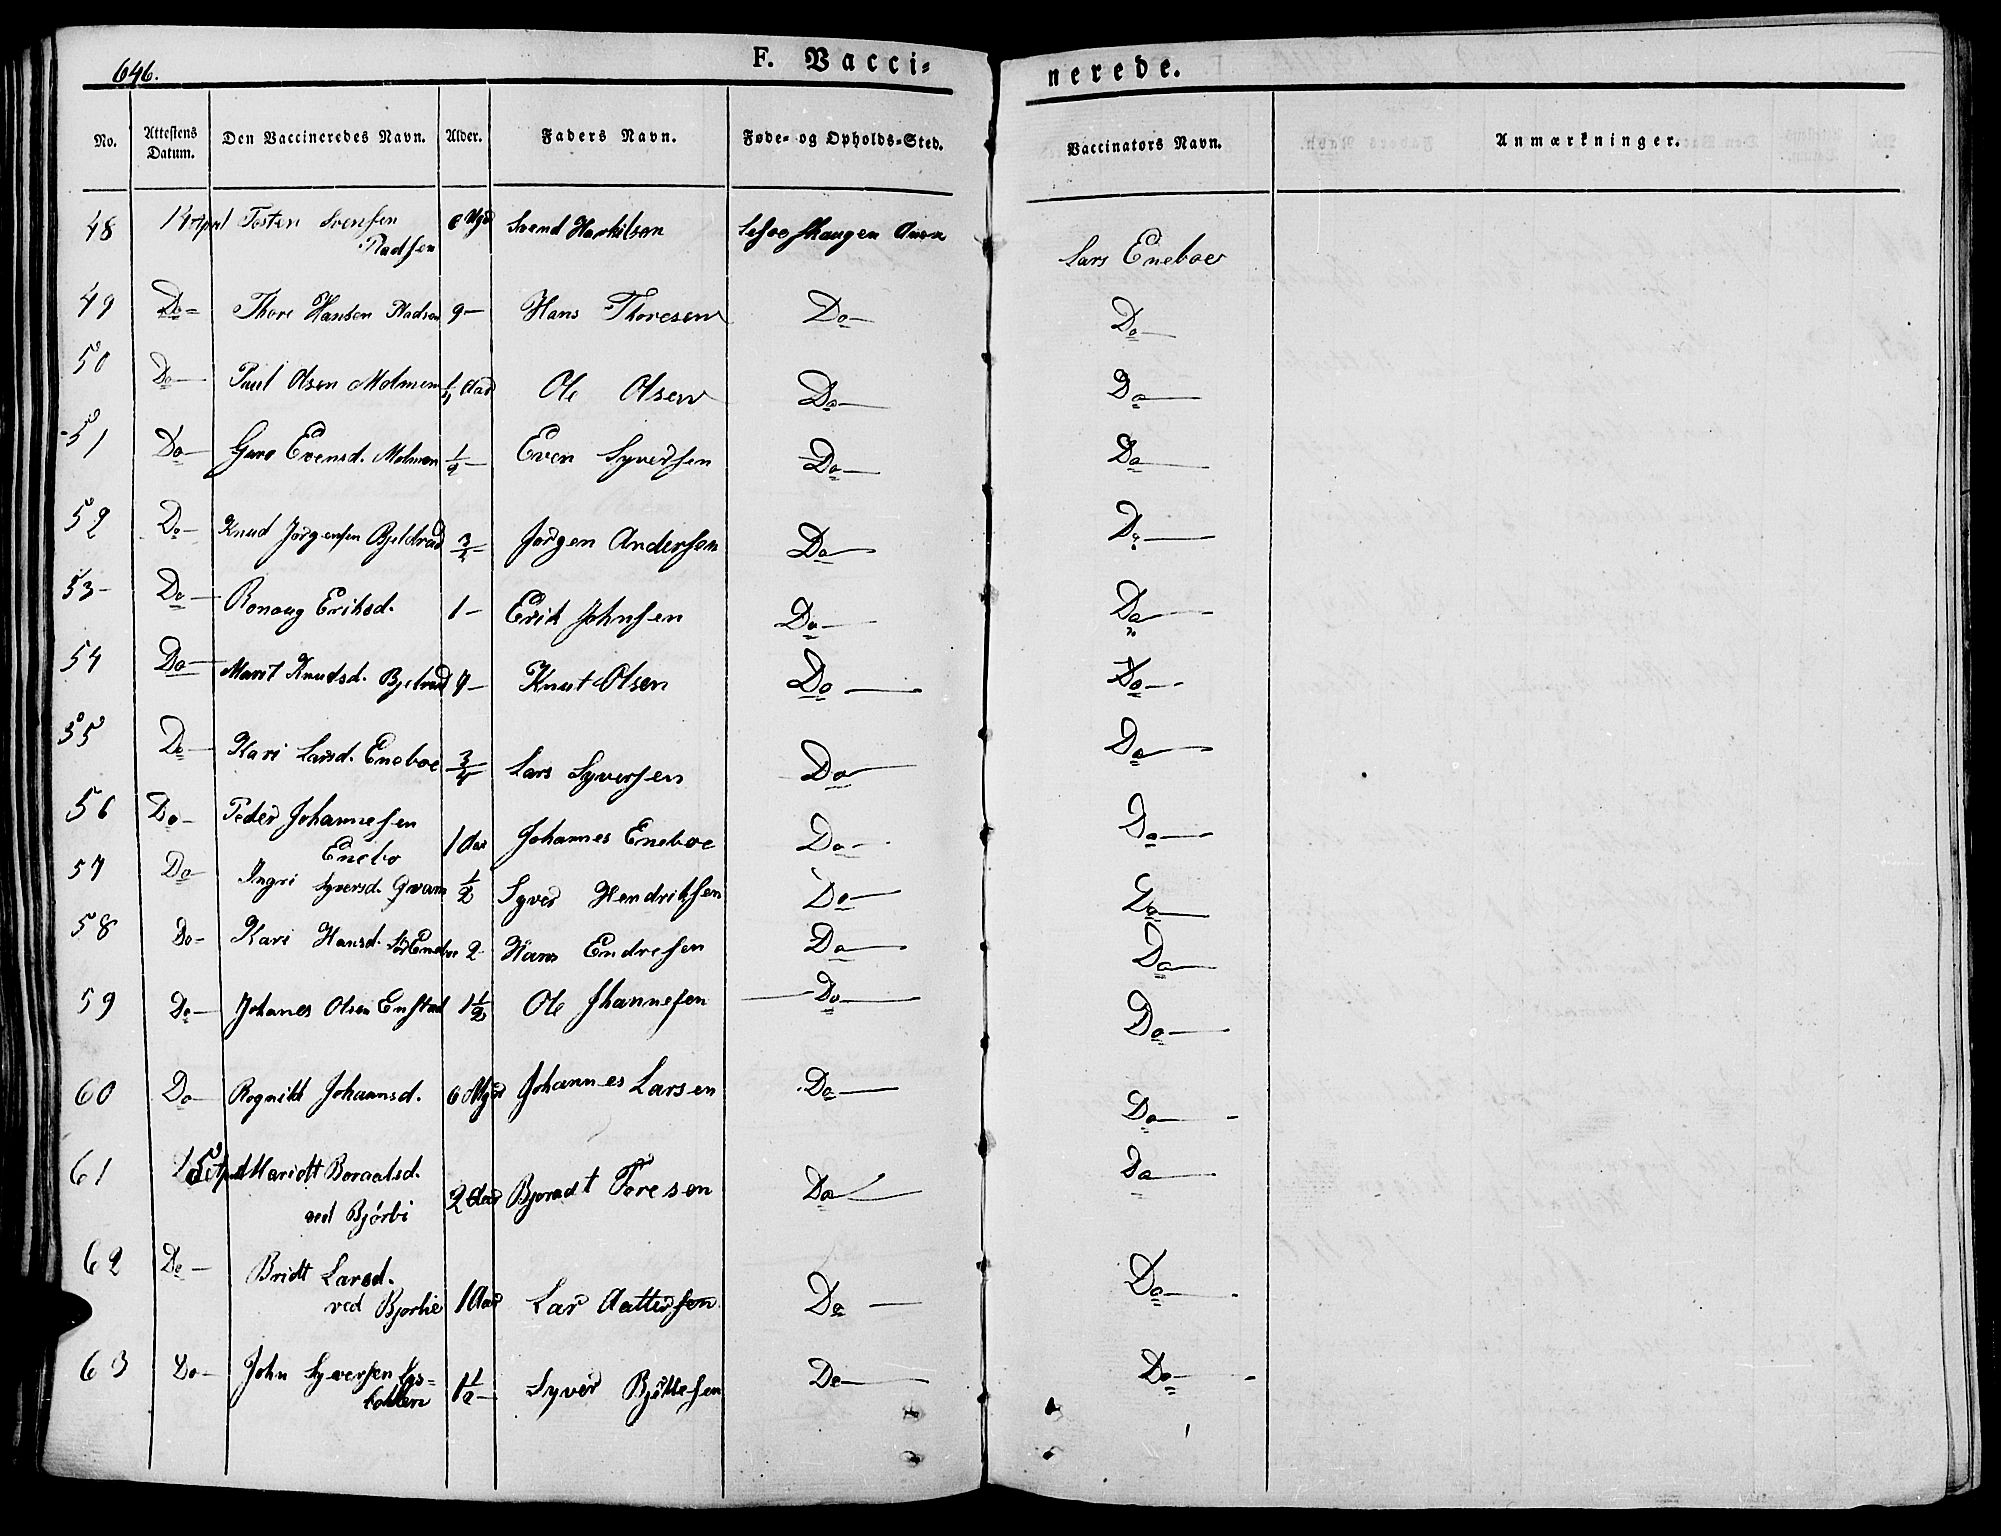 646.
F. Vacci=
nerede.
No. Attestens Datum. Den Vaccineredes Navn. Alder. Faders Navn. Føde- og Opholds-Sted. Vaccinators Navn. Anmærkninger.
48 14 April Tosten Svensen Svend Lars Eneboe
49 Do- Thore Hansen 9- Hans Thoresen Do- Do-
50 Do- Paul Olsen Molmen Aar Ole Olsen Do- Do-
51 Do- Evensd. Molmen Even Syversen Do- Do-
52 Do- Knud Jørgensen Jørgen Andersen Do- Do-
53- Do- Ronoug Eriksd. 1- Erik Johnsen Do- Do-
54 Do- Marit Knudsd. Knut Olsen Do- Do-
55 Do- Kari Larsd. Eneboe 3/4 Lars Syversen Do- Do-
56 Do- Peder Johannesen
Enebo 1 Aar Johannes Eneboe Do- Do-
57 Do- Ingri Syversd. Qvam 1/2 Syver Hendriksen Do- Do-
58 Do- Kari Hansd. 2 Hans Endresen Do- Do-
59 Do- Johanes Olsen Enstad 1 1/2 Ole Do- Do-
60 Do- Rognild Johannsd. 6 Johannes Larsen Do- Do-
61 15 April Maridt
ved 2 Aar Bjoradt Toresen Do- Do-
62 Do- Bridt Larsd.
ved Bjorlie 1 Aar Lar Do- Do-
63 Do- John Syversen
1 1/2- Syver Do- Do-